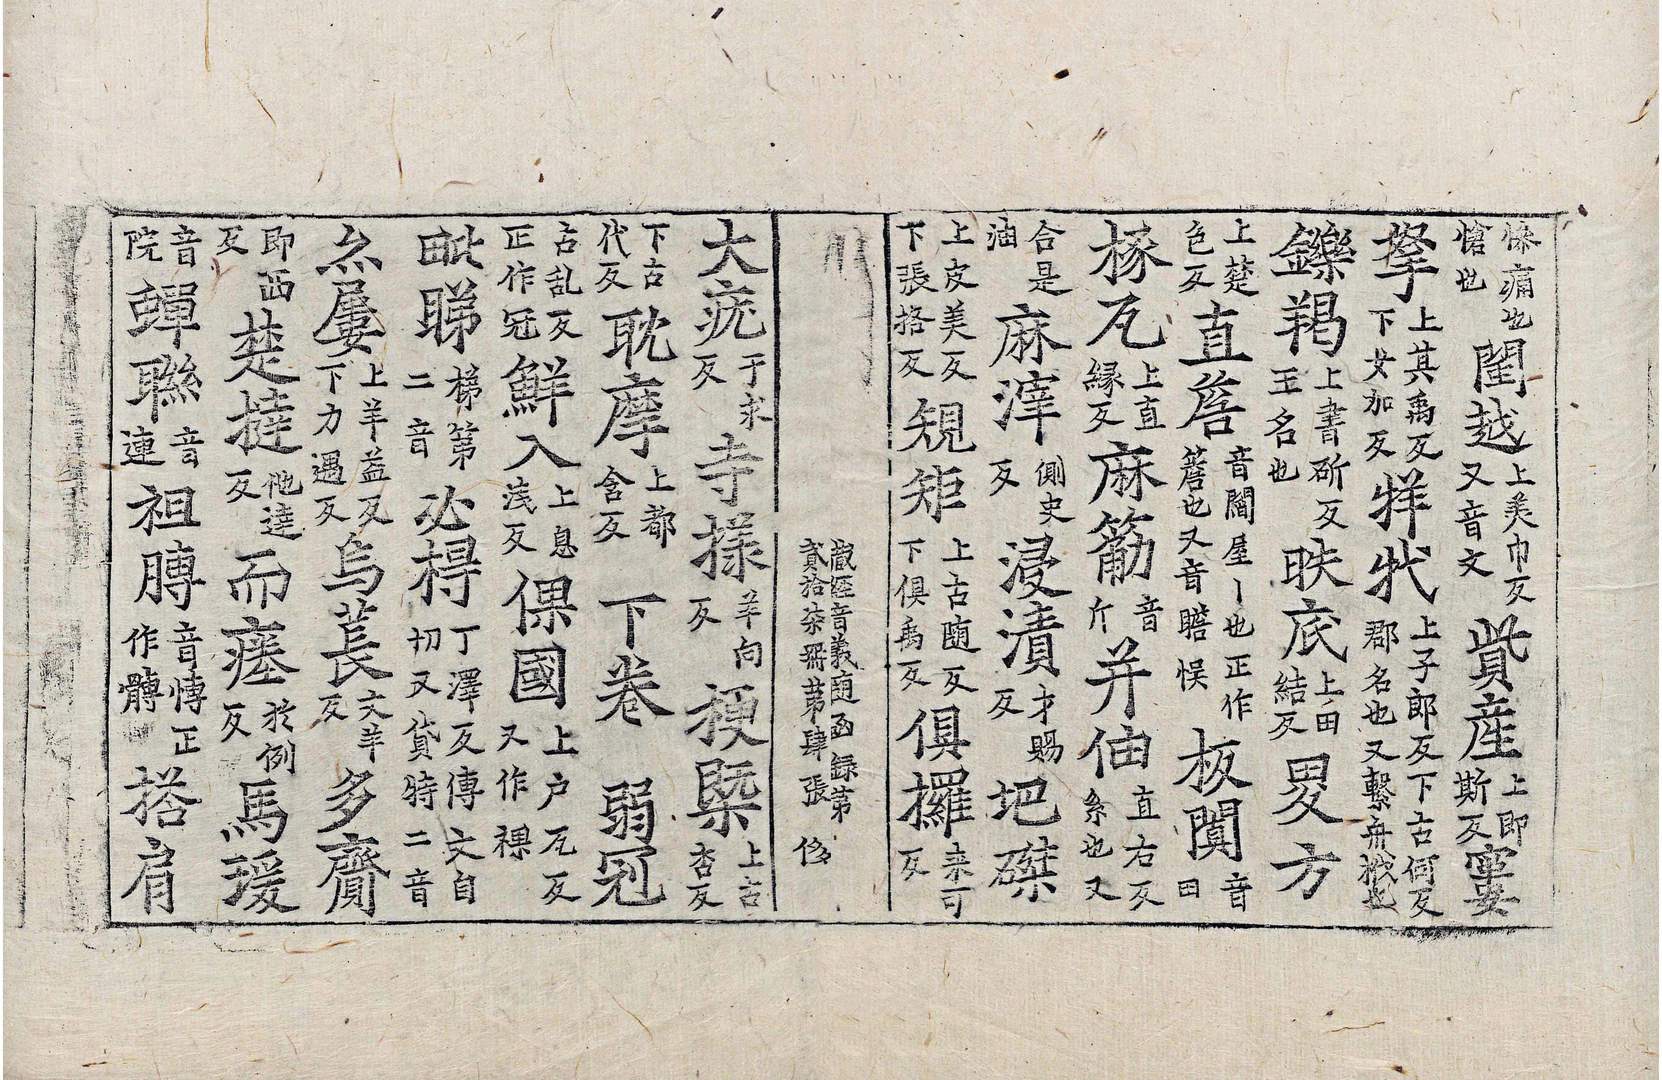 悽痛也愴也閨越上美巾反又音文貲産上即斯反寠
㨷上其禹反下女加反牂牁上子郎反下古何反郡名也又繫舟杙也
鑠羯上書斫反玉名也昳底上田結反畟方
上楚色反直簷音閻屋丶也正作簷也又音瞻悮板闐音田
椽瓦上直緣反麻筋音斤并伷直右反系也又
合是油麻滓側史反浸漬才賜反𡊄磔
上皮美反下張格反規矩上古随反下俱禹反俱攞来可反
蔵經音義随函録第貳拾柒冊第肆張 侈
大疣于求反寺樣羊向反梗槩上古杏反
下古代反耽摩上都含反下卷 弱冠
古乱反正作冠鮮入上息浅反倮國上户瓦反又作裸
毗睇梯第二音必得丁澤反傳文自切又貸特二音
𣧑屢上羊益反下力遇反烏萇丈羊反多齎
即西反楚撻他達反而瘞於例反馬援
音院蟬聯音連祖膞音慱正作髆搭肩